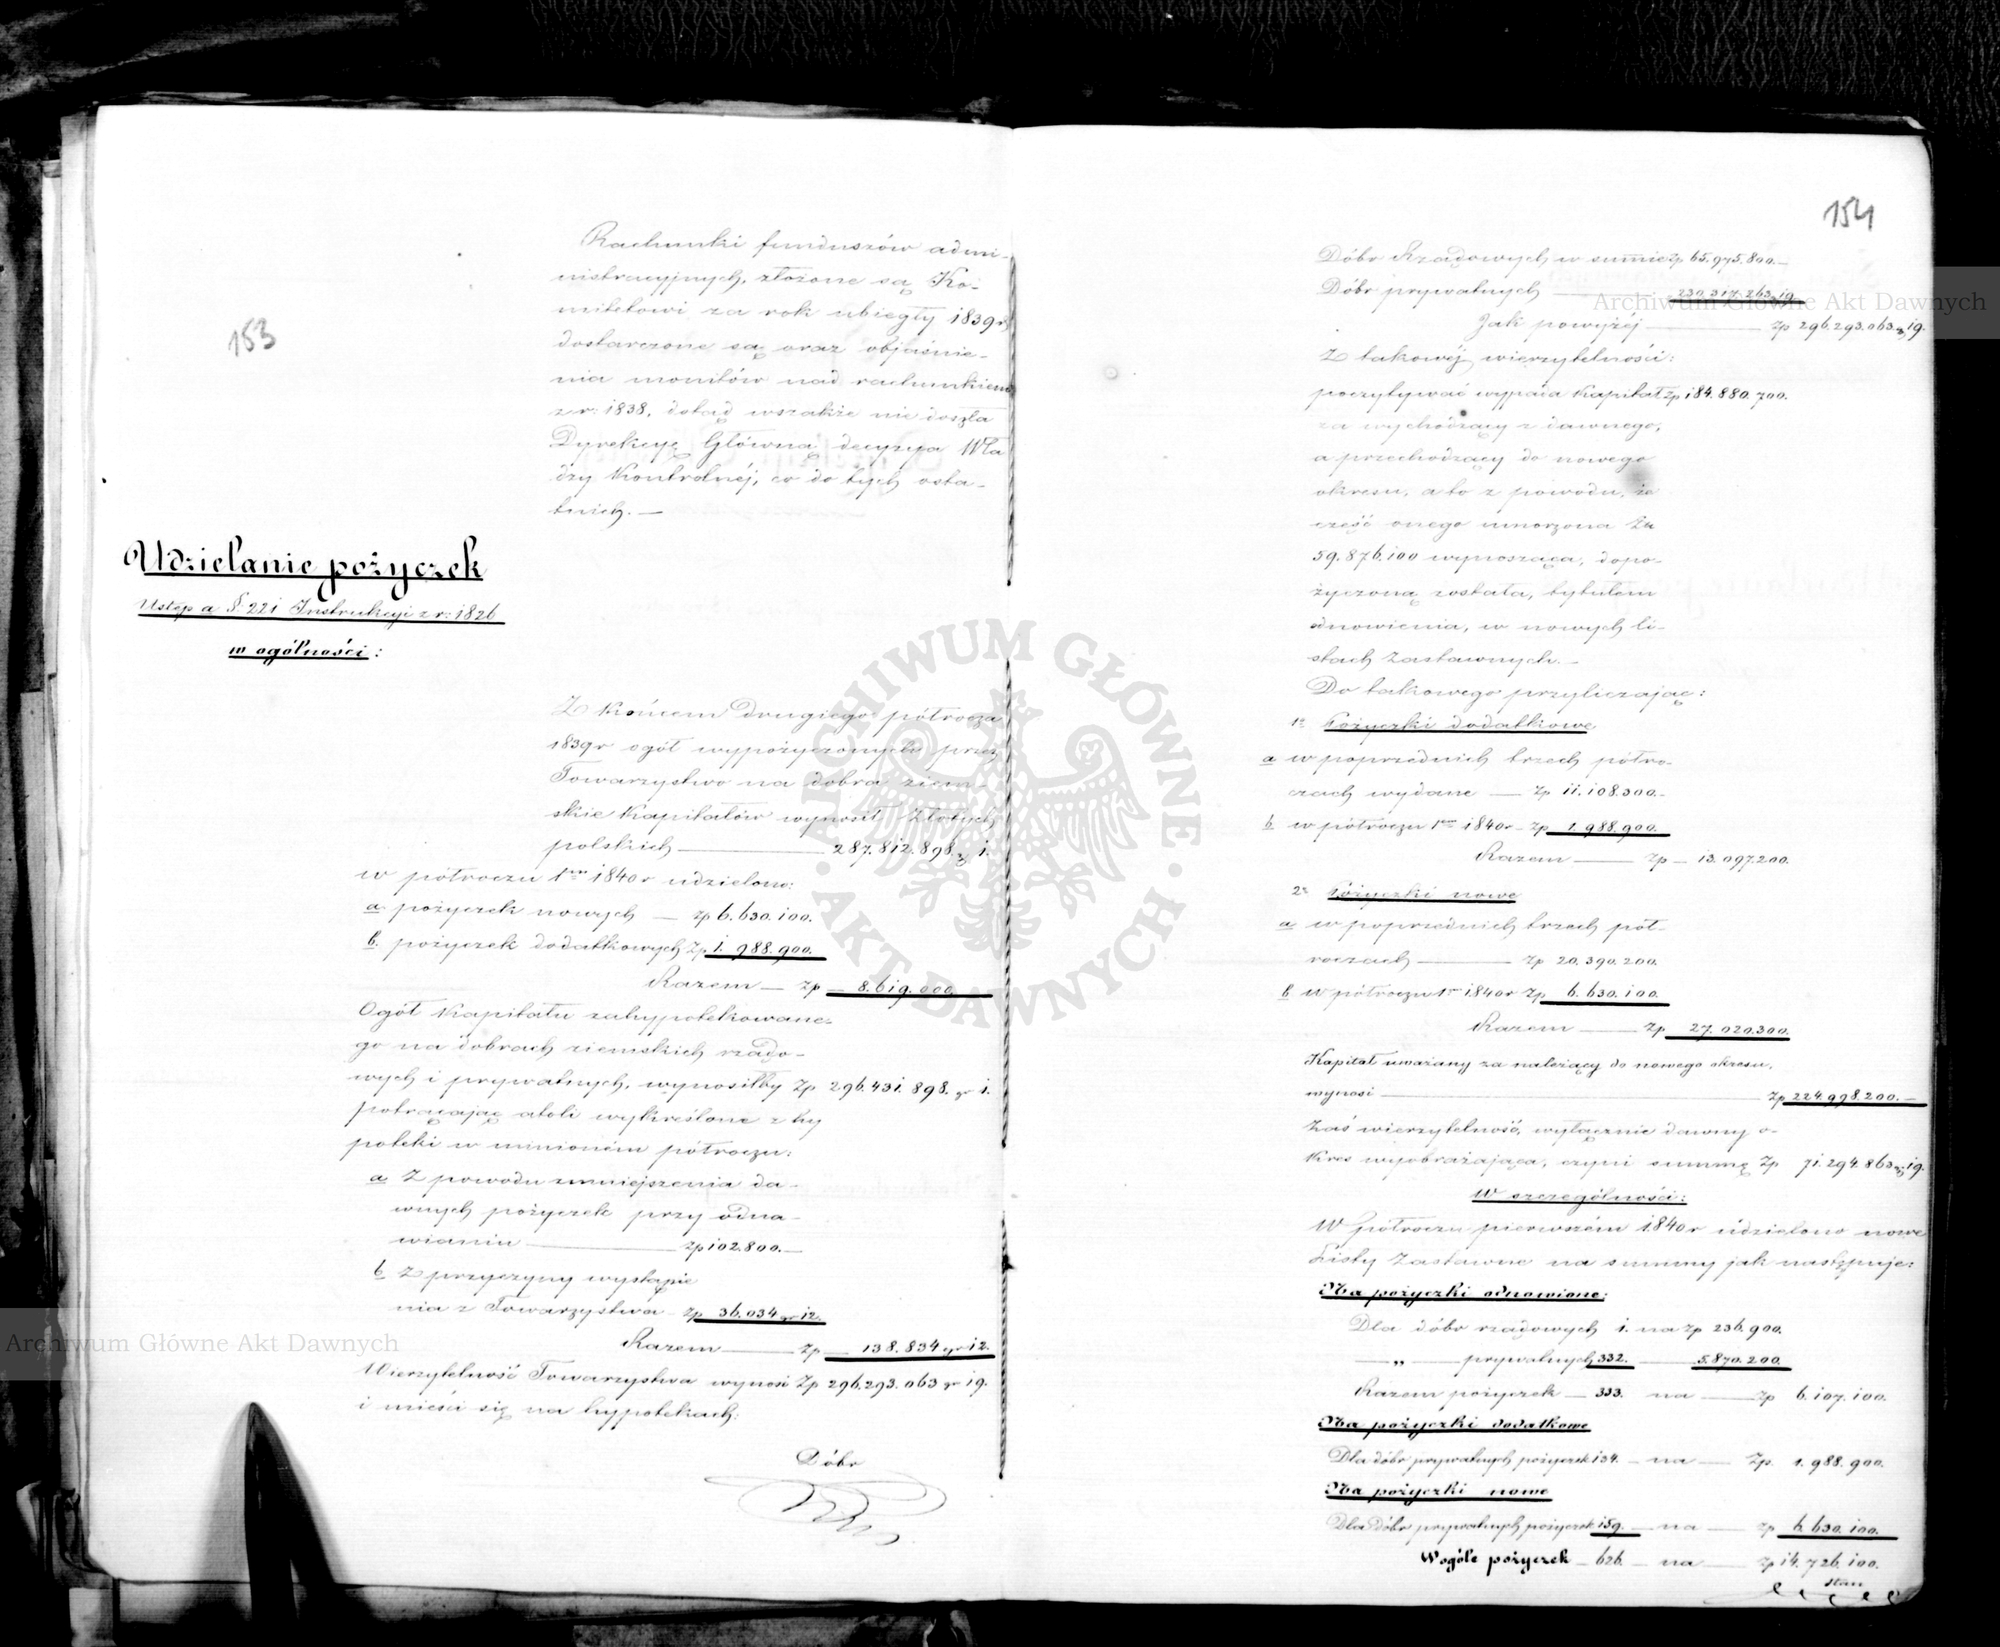 153
Rachunki funduszów admi-
nistracyjnych, złożone są Ko-
mitetowi za rok ubiegły 1839r,
dostarczone są oraz objaśnie-
nia monitów nad rachunkiem
z r: 1838, dotąd wszakże nie doszła
Dyrekcyę Główną decyzya Wła
dzy Kontrolnéj, co do tych osta-
tnich. —
Udzielanie pożyczek
Ustęp a §. 221 Instrukcyi z r: 1826
w ogólności:
Z końcem drugiego półrocza
1839r ogół wypożyczonych przez
Towarzystwo na dobra ziem-
skie Kapitałów wynosił Złotych
polskich — 287.812.898 gr 1.
w półroczu 1m 1840r udzielono:
a. pożyczek nowych — zp 6.630.100.
b. pożyczek dodatkowych Zp 1.988.900.
Razem — zp — 8.619.000.
Ogół Kapitału zahypotekowane-
go na dobrach ziemskich rządo-
wych i prywatnych, wynosiłby Zp 296.431.898. gr 1.
potrącając atoli wykreślone z hy
poteki w minioném półroczu:
a Z powodu zmniejszenia da-
wnych pożyczek przy odna-
wianiu — zp 102.800.—
b Z przyczyny wystąpie
nia z Towarzystwa — Zp 36.034 gr 12.
Razem — Zp — 138.834 gr 12.
Wierzytelność Towarzystwa wynosi Zp 296.293.063 gr 19.
i mieści się na hypotekach:
Dóbr
154
Dóbr Rządowych w summie zp 65.975.800.—
Dóbr prywatnych — 230.317.263 gr 19.
Jak powyżéj — Zp 296.293.063 gr 19.
Z takowéj wierzytelności:
poczytywać wypada Kapitał Zp 184.880.700.
za wychodzący z dawnego,
a przechodzący do nowego
okresu, a to z powodu, że
część onego umorzona Zp
59.876.100 wynosząca, dopo-
życzoną została, tytułem
odnowienia, w nowych li-
stach Zastawnych. —
Do takowego przyliczając:
1e Pożyczki dodatkowe
a w poprzednich trzech półro-
czach wydane — Zp 11.108.300.—
b w półroczu 1m 1840r — Zp 1.988.900.
Razem — Zp — 13.097.200.
2e Pożyczki nowe
a w poprzednich trzech pół-
roczach — Zp 20.390.200.
b w półroczu 1m 1840r Zp 6.630.100.
Razem — Zp 27.020.300.
Kapitał uważany za należący do nowego okresu,
wynosi — Zp 224.998.200.—
Zaś wierzytelność, wyłącznie dawny o-
kres wyobrażająca, czyni summę Zp 71.294.863 gr 19.
W szczególności:
W półroczu pierwszém 1840r udzielono nowe
Listy Zastawne na summy jak następuje:
Na pożyczki odnowione:
Dla dóbr rządowych 1. na Zp 236.900.
— „ — prywatnych 332. — 5.870.200.
Razem pożyczek — 333. na — Zp 6.107.100.
Na pożyczki dodatkowe
Dla dóbr prywatnych pożyczek 134. — na — Zp. 1.988.900.
Na pożyczki nowe
Dla Dóbr prywatnych pożyczek 159. — na — Zp 6.630.100.
W ogóle pożyczek — 626. — na — Zp 14.726.100.
Stan
Archiwum Główne Akt Dawnych
Archiwum Główne Akt Dawnych
ARCHIWUM GŁÓWNE · AKT DAWNYCH ·